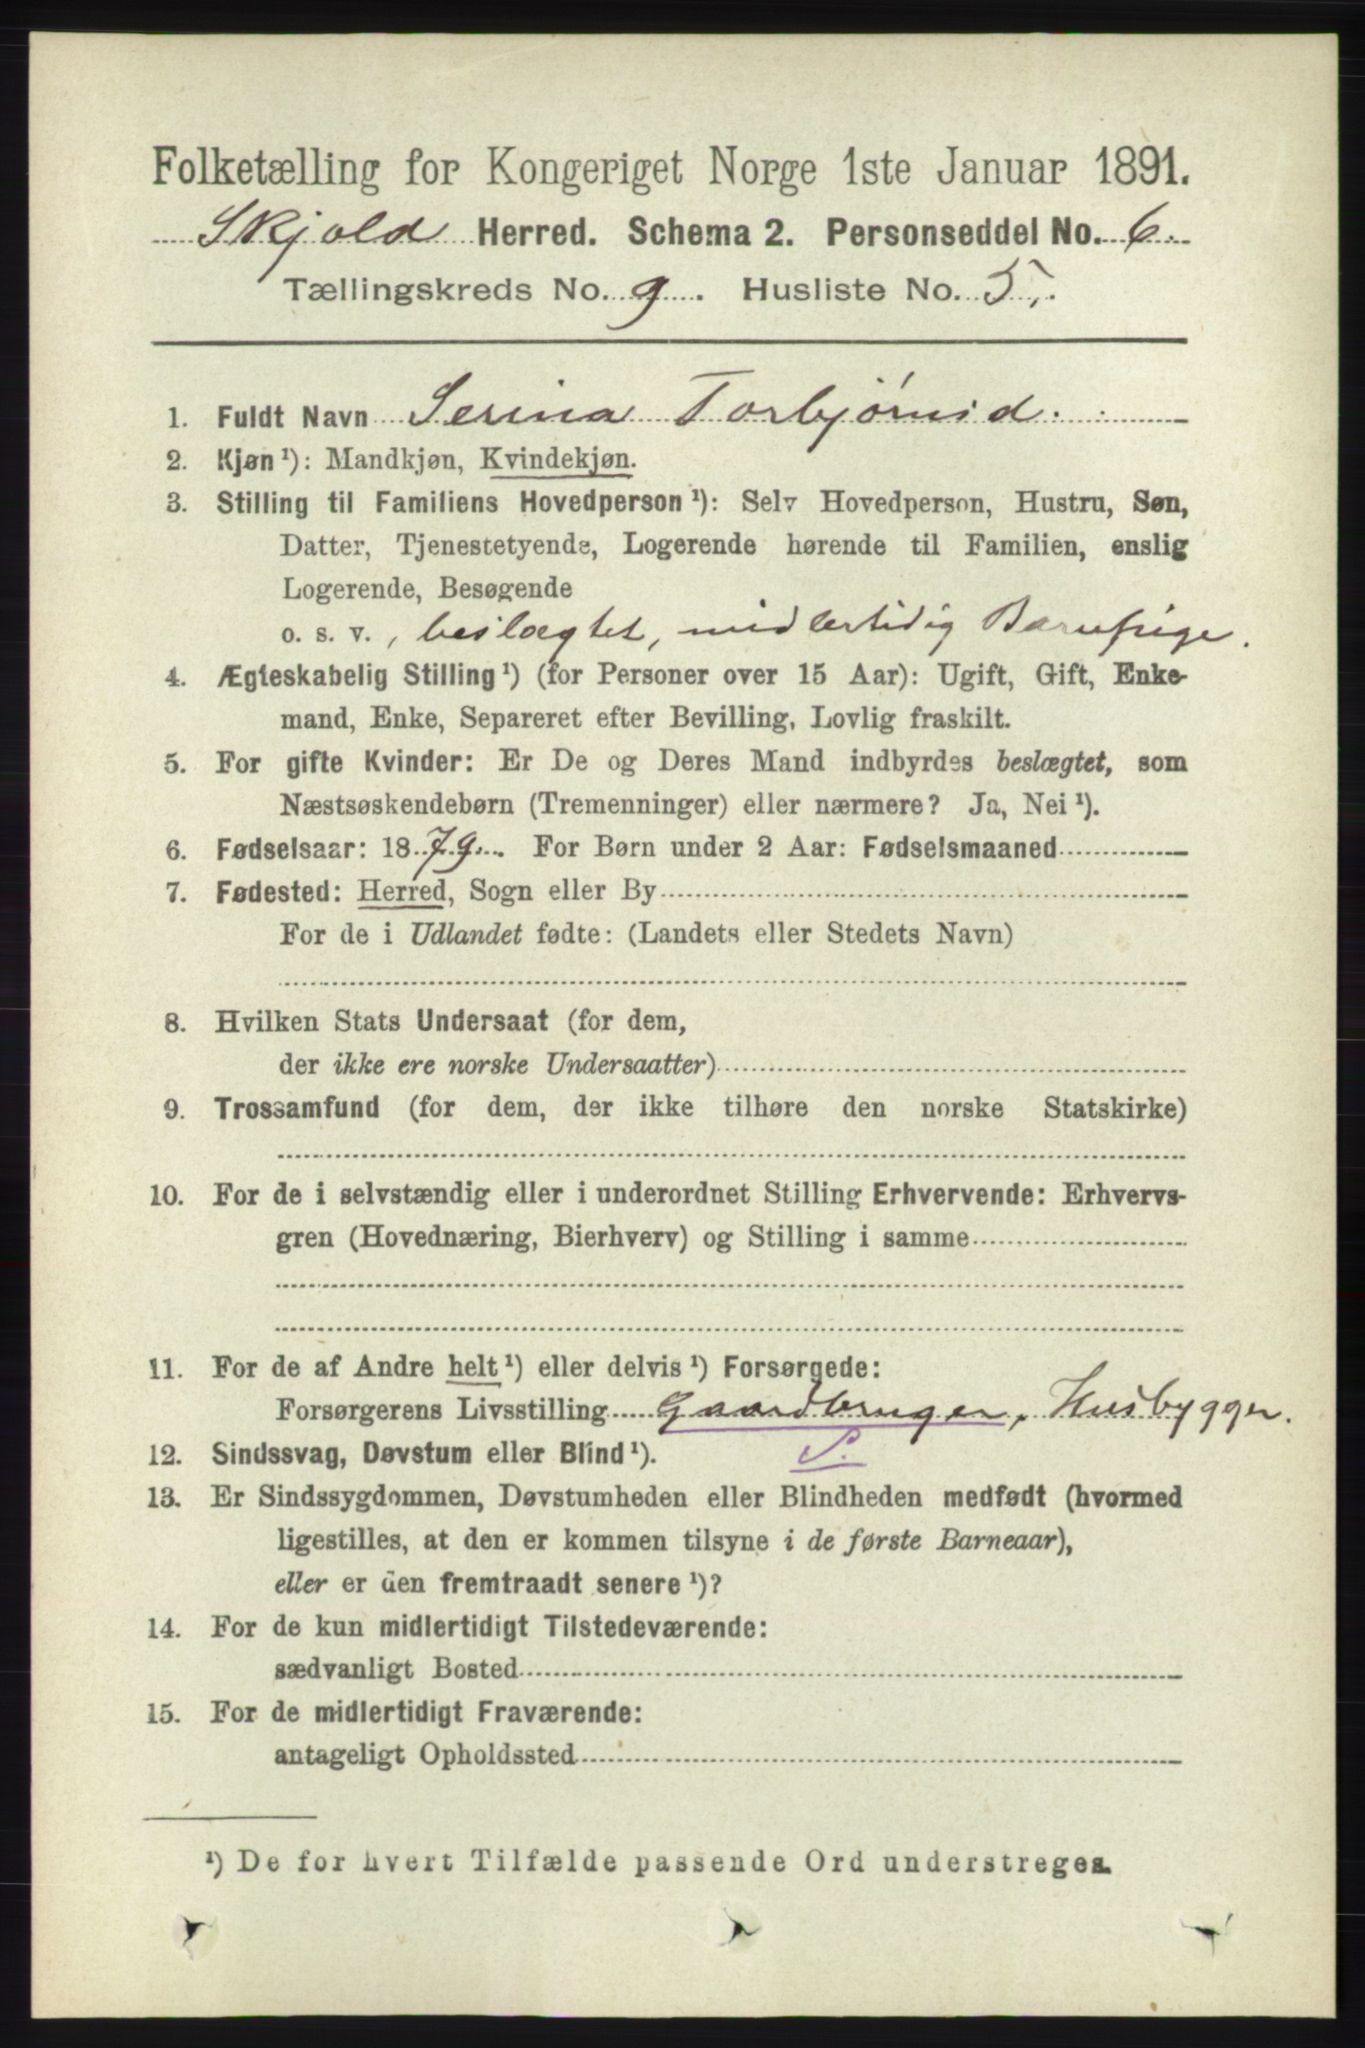 Folketælling for Kongeriget Norge 1ste Januar 1891.
Skjold Herred. Schema 2. Personseddel No. 6.
Tællingskreds No. 9. Husliste No. 5.
1. Fuldt Navn Serina Torbjørnsd.
2. Kjøn ¹): Mandkjøn, Kvindekjøn.
3. Stilling til Familiens Hovedperson ¹): Selv Hovedperson, Hustru, Søn,
Datter, Tjenestetyende, Logerende hørende til Familien, enslig
Logerende, Besøgende
o. s. v. , beslægtet, midlertidig Barnepige.
4. Ægteskabelig Stilling ¹) (for Personer over 15 Aar): Ugift, Gift, Enke-
mand, Enke, Separeret efter Bevilling, Lovlig fraskilt.
5. For gifte Kvinder: Er De og Deres Mand indbyrdes beslægtet, som
Næstsøskendebørn (Tremenninger) eller nærmere? Ja, Nei ¹).
6. Fødselsaar: 1879. For Børn under 2 Aar: Fødselsmaaned
7. Fødested: Herred, Sogn eller By
For de i Udlandet fødte: (Landets eller Stedets Navn)
8. Hvilken Stats Undersaat (for dem,
der ikke ere norske Undersaatter)
9. Trossamfund (for dem, der ikke tilhøre den norske Statskirke)
10. For de i selvstændig eller i underordnet Stilling Erhvervende: Erhvervs-
gren (Hovednæring, Bierhverv) og Stilling i samme
11. For de af Andre helt ¹) eller delvis ¹) Forsørgede:
Forsørgerens Livsstilling Gaardbruger, Husbygger.
12. Sindssvag, Døvstum eller Blind ¹). S.
13. Er Sindssygdommen, Døvstumheden eller Blindheden medfødt (hvormed
ligestilles, at den er kommen tilsyne i de første Barneaar),
eller er den fremtraadt senere ¹)?
14. For de kun midlertidigt Tilstedeværende:
sædvanligt Bosted
15. For de midlertidigt Fraværende:
antageligt Opholdssted
¹) De for hvert Tilfælde passende Ord understreges.